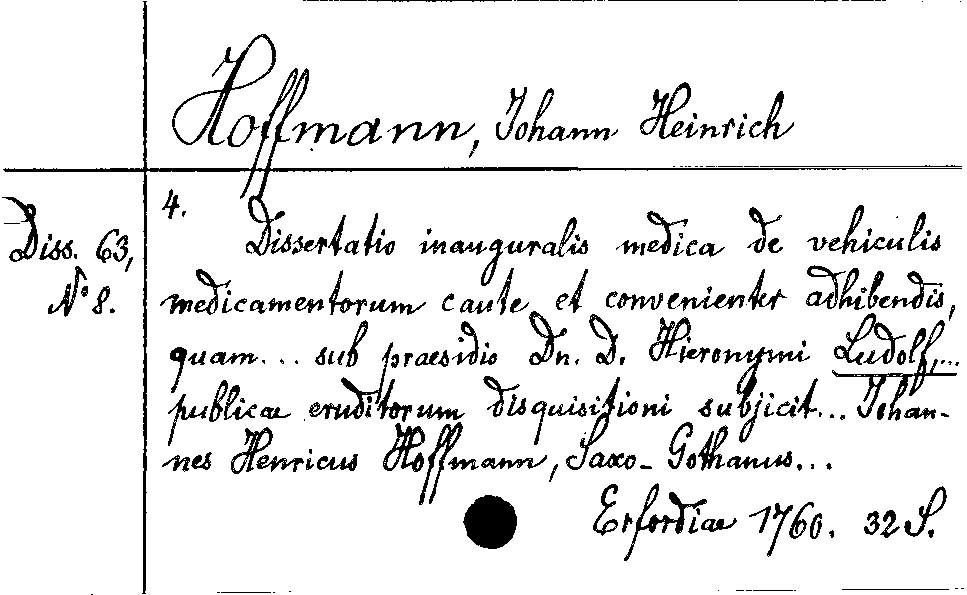 Hoffmann, Johann Heinrich
Diss. 63,
No 8.
4.
Dissertatio inauguralis medica de vehiculis
medicamentorum caute et convenienter adhibendis,
quam... sub praesidio Dn. D. Hieronymi Ludolf,...
publicae eruditorum disquisitioni subjicit... Johan-
nes Henricus Hoffmann, Saxo-Gothanus...
Erfordiae 1760. 32 S.